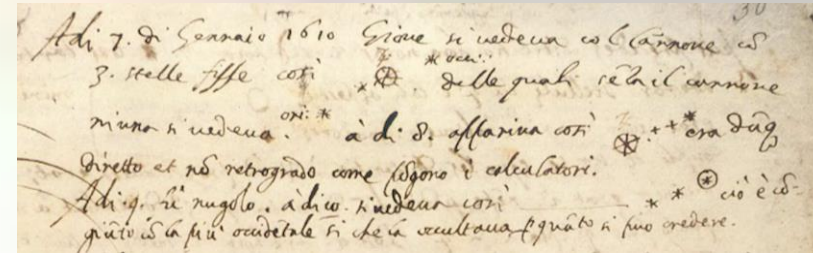 Adi 7. di Gennaio 1610 Giove si vedeva col Cannone cõ
3. stelle fisse così delle quali sẽza il cannone
niuna si vedeva. à dì 8. appariva così era dũq
diretto et nõ retrogrado come põgono i calculatori.
Adi 9. fù nugolo. à dì 10. si vedeva così ciò è cõ-
giũto cõ la più occidẽtale sì che la occultava p quãto si può credere.